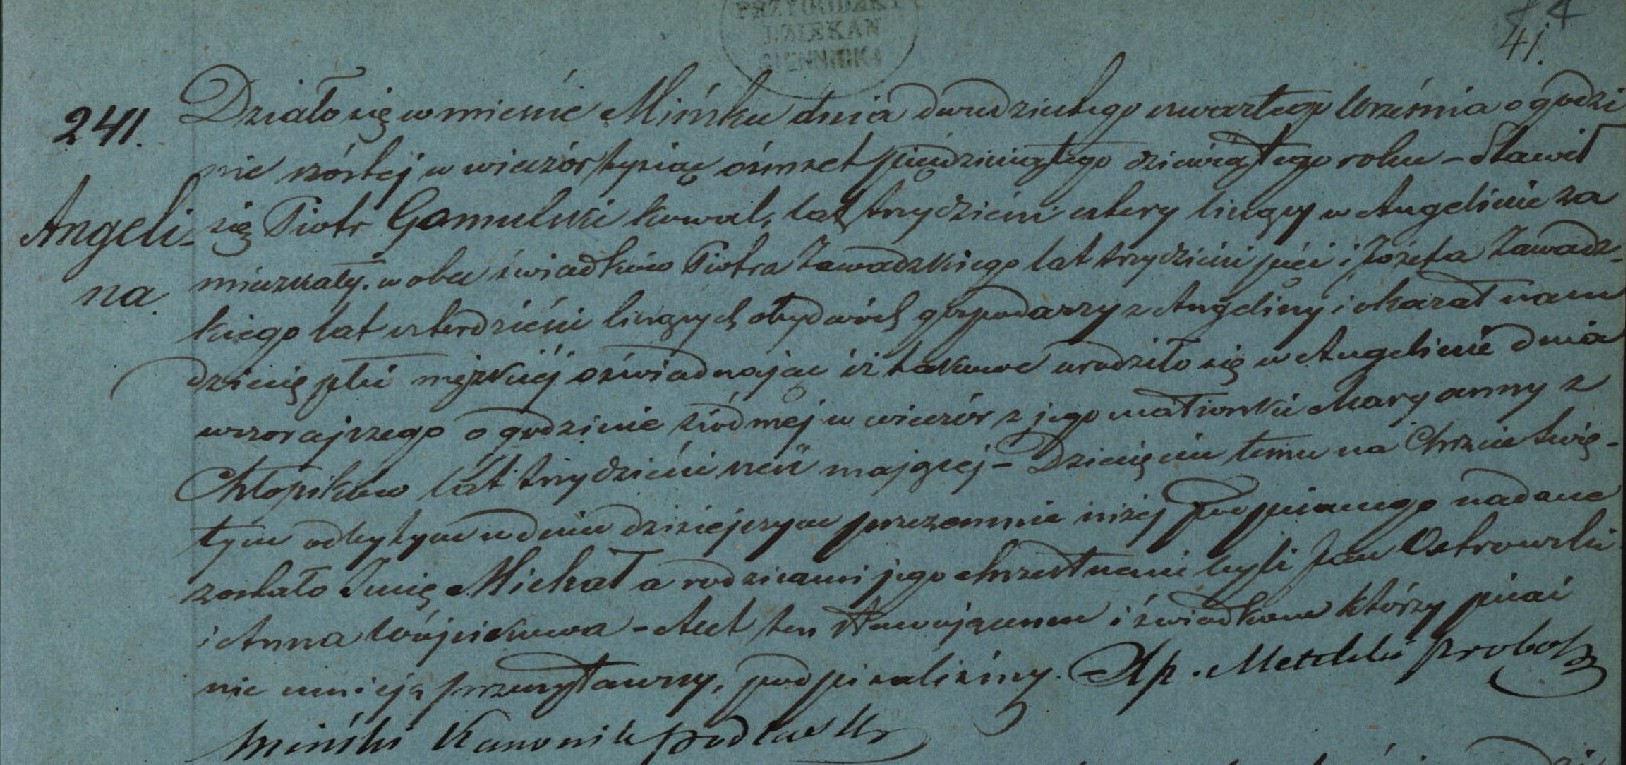 DZIEKAN
41.
241.
Angeli-
na.
Działo się w mieście Mińsku dnia dwudziestego czwartego Września o godzi
nie szóstej w wieczór tysiąc ośmset pięćdziesiątego dziewiątego roku – Stawił
się Piotr Gomulski kowal, lat trzydzieści cztery liczący w Angelinie za
mieszkały, w obec świadków Piotra Zawadzkiego lat trzydzieści pięć i Józefa Zawadz-
kiego lat czterdzieści liczących obydwóch gospodarzy z Angeliny i okazał nam
dziecię płci męzkiéj oświadczając iż takowe urodziło się w Angelinie dnia
wczorajszego o godzinie siódmej w wieczór z jego małżonki Maryanny z
Chłopików lat trzydzieści sześć mającej – Dziecięciu temu na Chrzcie Świę-
tym odbytym w dniu dzisiejszym przezemnie niżej podpisanego nadane
zostało Imię Michał a rodzicami jego chrzestnemi byli Jan Ostrowski
i Anna Wójcikowa – Akt ten stawającemu i świadkom którzy pisać
nie umieją przeczytawszy, podpisaliśmy. X Metelski Probosz
Miński Kanonik Podlaski